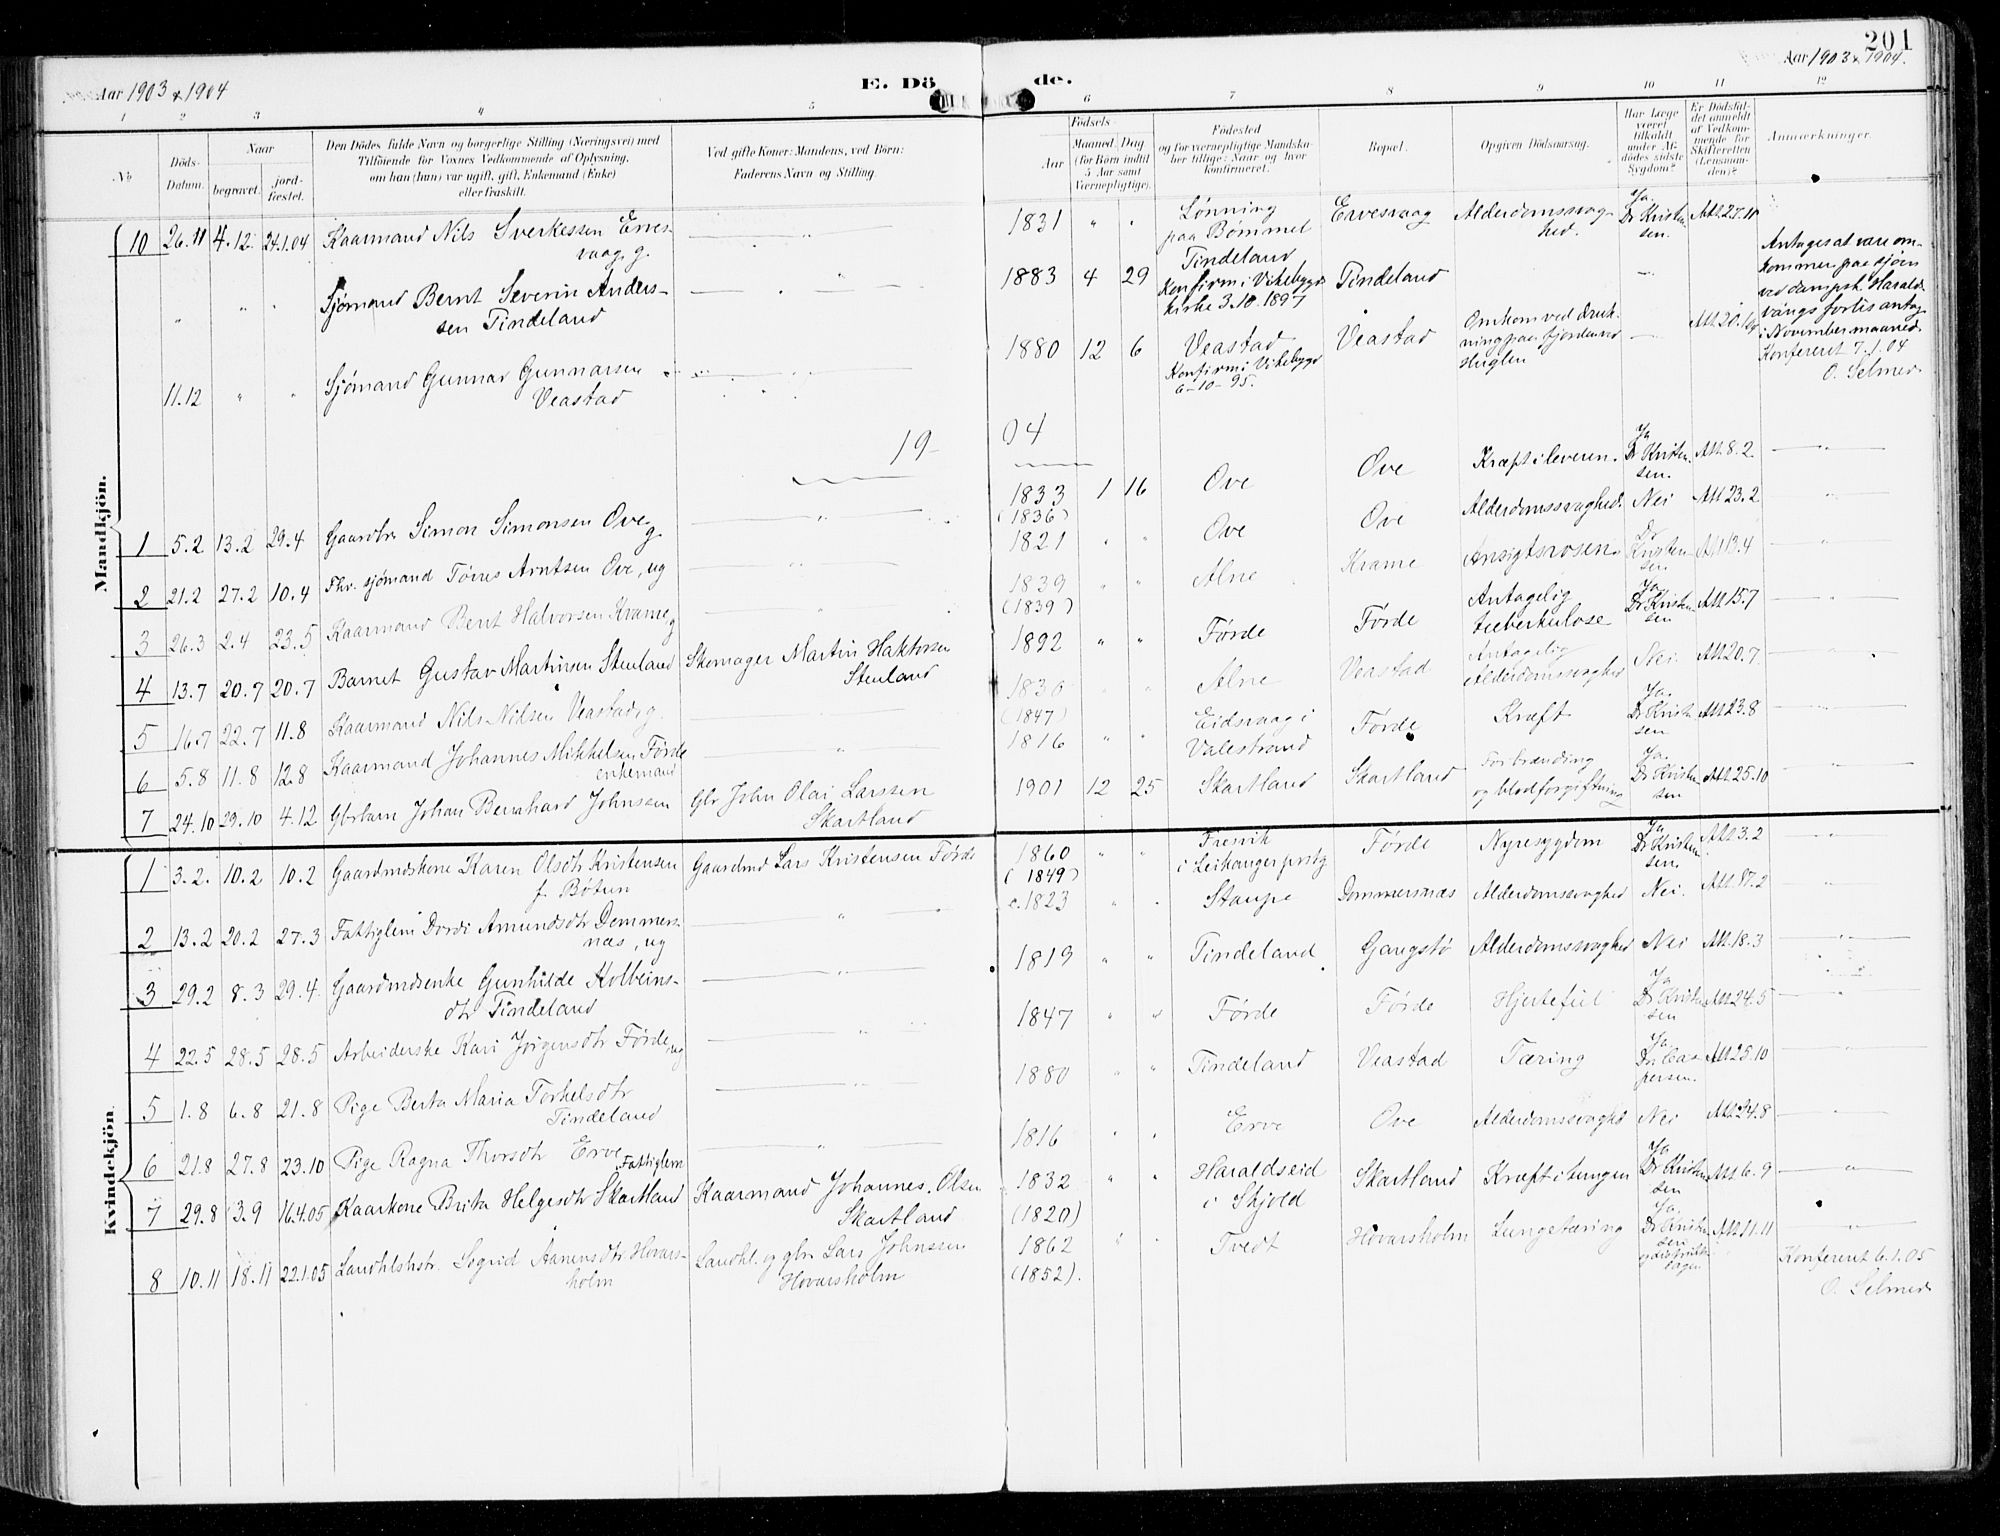 201
Aar 1903 & 1904
E. Dö
de.
Aar 1903 & 1904.
1 2 3 4 5 6 7 8 9 10 11 12
No
Döds-
Datum.
Naar
begravet.
jord-
fæstet.
Den Dödes fulde Navn og borgerlige Stilling (Næringsvei) med
Tilföiende for Voxnes Vedkommende af Oplysning,
om han (hun) var ugift, gift, Enkemand (Enke)
eller fraskilt.
Ved gifte Koner: Mandens, ved Börn:
Faderens Navn og Stilling.
Födsels-
Aar
Maaned.
(for Börn indtil
5 Aar samt
Værnepligtige).
Dag
Födested
og for værnepligtige Mandska-
ber tillige: Naar og hvor
konfirmeret.
Bopæl.
Opgiven Dödsaarsag.
Har Læge
været
tilkaldt
under Af-
dödes sidste
Sygdom?
Er Dödsfal-
det anmeldt
af Vedkom-
mende for
Skifteretten
(Lensman-
den)?
Anmærkninger.
Mandkjön.
10 26.11 4.12 24.1.04 Kaarmand Nils Sverkessen Erves-
vaag, g. 1831 " " Lønning
paa Bømmel Ervesvaag Alderdomssvag-
hed. Ja
Dr Kristen-
sen. Att. 27.11
" " " Sjømand Bernt Severin Anders-
sen Tindeland 1883 4 29 Tindeland
Konfirm i Vikebygd
kirke 3.10.1897 Tindeland
Antages at være om-
kommen paa sjøen
ved dampsk. Harald
forlis antag.
i November maaned.
11.12 " " Sjømand Gunnar Gunnarsen
Veastad 1880 12 6 Veastad
Konfirm i Vikebygd
6-10-95. Veastad Omkom ved druk-
ning paa fjorden ved
Huglen
Konfereret 7.1.04
O. Selmer
19 04
1 5.2 13.2 29.4 Gaardbr Simon Simonsen Ove, g 1833
(1836) 1 16 Ove Ove Kræft i leveren. Ja
Dr Kristen-
sen. Att. 8.2
2 21.2 27.2 10.4 Fhv. sjømand Tørres Arntsen Ove, ug 1821 " " Ove Ove Alderdomssvaghed. Nei Att 23.2
3 26.3 2.4 23.5 Kaarmand Bernt Halvorsen Krame, g 1839
(1839) " " Alne Krame Ansigtsrosen. Dr
Kristen-
sen Att 13.4
4 13.7 20.7 20.7 Barnet Gustav Martinsen Stenland Skomager Martin Haktorsen
Stenland 1892 " " Førde Førde Antagelig
tuberkulose Ja
Dr Kristen-
sen Att 15.7
5 16.7 22.7 11.8 Kaarmand Nils Nilsen Veastad, g. 1836
(1847) " " Alne Veastad Antagelig
Alderdomssvaghed Nei. Att 20.7
6 5.8 11.8 12.8 Kaarmand Johannes Mikkelsen Førde
enkemand 1816 " " Eidsvaag i
Valestrand Førde Kræft Ja
Dr Kristen
sen Att 23.8
7 24.10 29.10 4.12 Gbrbarn Johan Bernhard Johnssen Gbr John Olai Larssen
Skartland 1901 12 25 Skartland Skartland Forbrænding
og blodforgiftning Ja
Dr Kristen
sen Att 25.10
Kvindekjön.
1 3.2. 10.2 10.2 Gaardmdskone Karen Olsdtr Kristensen
f. Bøtun Gaardmd Lars Kristensen Førde 1860
(1849) " " Fresvik
i Leikanger prstg Førde Nyresygdom Ja
Dr Kristen
sen. Att 3.2
2 13.2 20.2 27.3 Fattiglem Dordi Amundsdtr Dommers-
næs, ug c. 1823 " " Staupe Dommersnæs Alderdomssvaghed Nei. Att. 17.2
3 29.2 8.3 29.4 Gaardmdsenke Gunhilde Kolbeins-
dtr Tindeland 1819 " " Tindeland Gangstø Alderdomssvaghed Nei Att. 18.3
4 22.5 28.5 28.5 Arbeiderske Kari Jørgensdtr Førde, ug 1847 " " Førde Førde Hjertefeil Ja
Dr Kristen
sen Att 24.5
5 1.8 6.8 21.8 Pige Berta Maria Torkelsdtr
Tindeland 1880 " " Tindeland Veastad Tæring Ja
persen. Att 25.10
6 21.8 27.8 23.10 Pige Ragna Thorsdtr Erve
Fattiglem 1816 " " Erve Ove Alderdomssvaghd Nei Att. 24.8
7 29.8 3.9 16.4.05 Kaarkone Brita Helgesdtr Skartland Kaarmand Johannes Olsen
Skartland 1832
(1820) " " Haraldseid
i Skjold Skartland Kræft i tungen Ja
Dr Kristen
sen Att 6.9
8 10.11 18.11 22.1.05 Landhlshstr. Sogrid Aanensdtr Hovars-
holm Landhl. og gbr Lars Johnssen
Hovarsholm 1862
(1852). " " Tvedt Hovarsholm Lungetæring Ja
Dr Kristen
sen
Att 11.11
Konfereret 6.1.05
O. Selmer